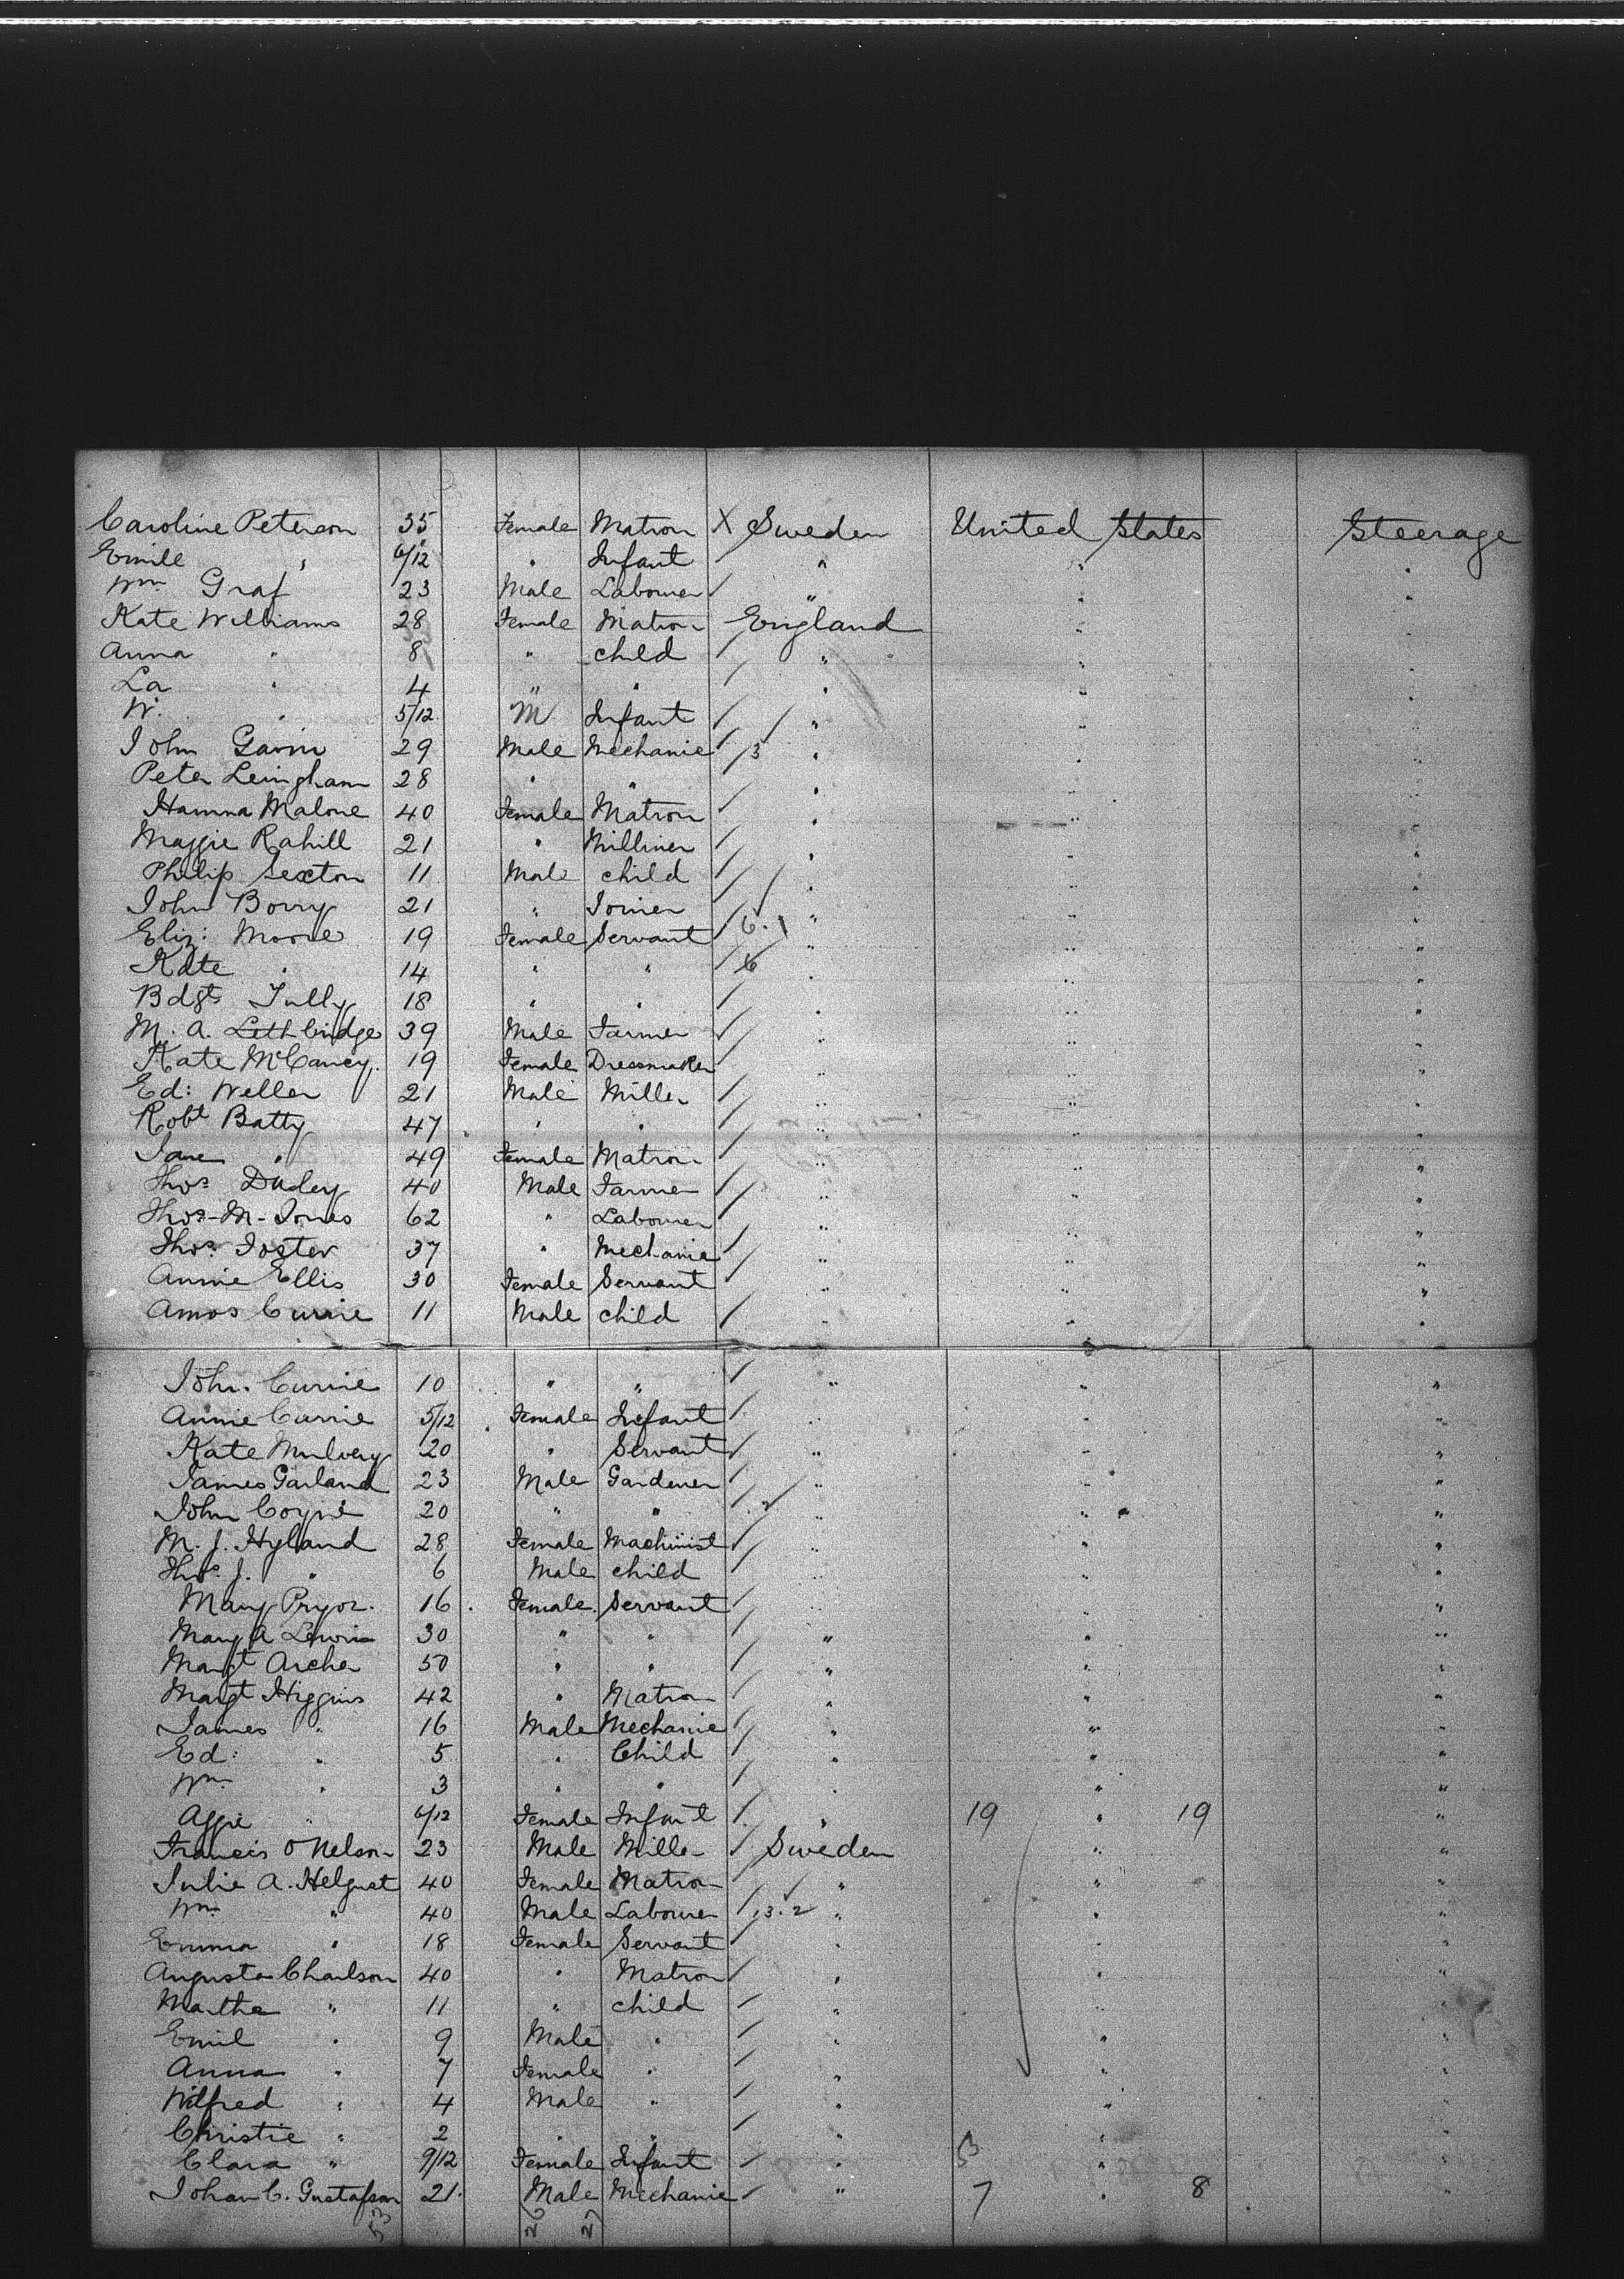 Caroline Peterson 35 Female Matron X Sweden United States Steerage
Emill " 6/12 " Infant " " "
Wm Graf 23 Male Labourer / " " "
Kate Williams 28 Female Matron England " "
Anna " 8 " child / " " "
La " 4 " " / " " "
W. " 5/12 M Infant / " " "
John Gavin 29 Male Mechanic / 3 " " "
Peter Leingham 28 " " " " "
Hanna Malone 40 Female Matron / " " "
Maggie Rahill 21 " Milliner / " " "
Philip Sexton 11 Male child / " " "
John Borry 21 " Joiner / " " "
Eliz: Moore 19 Female Servant / 6.1 " " "
Kate " 14 " " / 6 " " "
Bdgt Tully 18 " " / " " "
M. A. Lethbridge 39 Male Farmer / " " "
Kate McCaney. 19 Female Dressmaker " " "
Ed: Weller 21 Male Miller / " " "
Robt Batty 47 " " / " " "
Jane " 49 Female Matron / " " "
Thos Dudley 40 Male Farmer / " " "
Thos-M-Jones 62 " Labourer " " "
Thos. Foster 37 " Mechanic / " " "
Annie Ellis 30 Female Servant / " " "
Amos Currie 11 Male child / " " "
John. Currie 10 " " / " " "
Annie Currie 5/12 Female Infant / " " "
Kate Mulvey 20 " Servant / " " "
James Garland 23 Male Gardener / " " "
John Coyne 20 " " / 2 " " "
M. J. Hyland 28 Female Machinist / " " "
Thos J. " 6 Male child / " " "
Mary Pryor. 16 Female Servant / " " "
Mary A Lewis 30 " " / " " "
Margt Archer 50 " " / " " "
Margt Higgins 42 " Matron / " " "
James " 16 Male Mechanic / " " "
Ed: " 5 " Child / " " "
Wm " 3 " " / " " "
Aggie " 6/12 Female Infant / " 19 " 19 "
Francis O Nelson 23 Male Miller / Sweden " "
Julie A. Helgust 40 Female Matron / " " "
Wm " 40 Male Labourer / 13.2 " " "
Emma " 18 Female Servant / " " "
Augusta Charlson 40 " Matron / " " "
Martha " 11 " child / " " "
Emil " 9 Male " / " " "
Anna " 7 Female " / " " "
Wilfred " 4 Male " / " " "
Christie " 2 " " / " " "
Clara " 9/12 Female Infant / " " "
Johan C. Gustafson 21. Male Mechanic / " 7 " 8 "
53 26 27